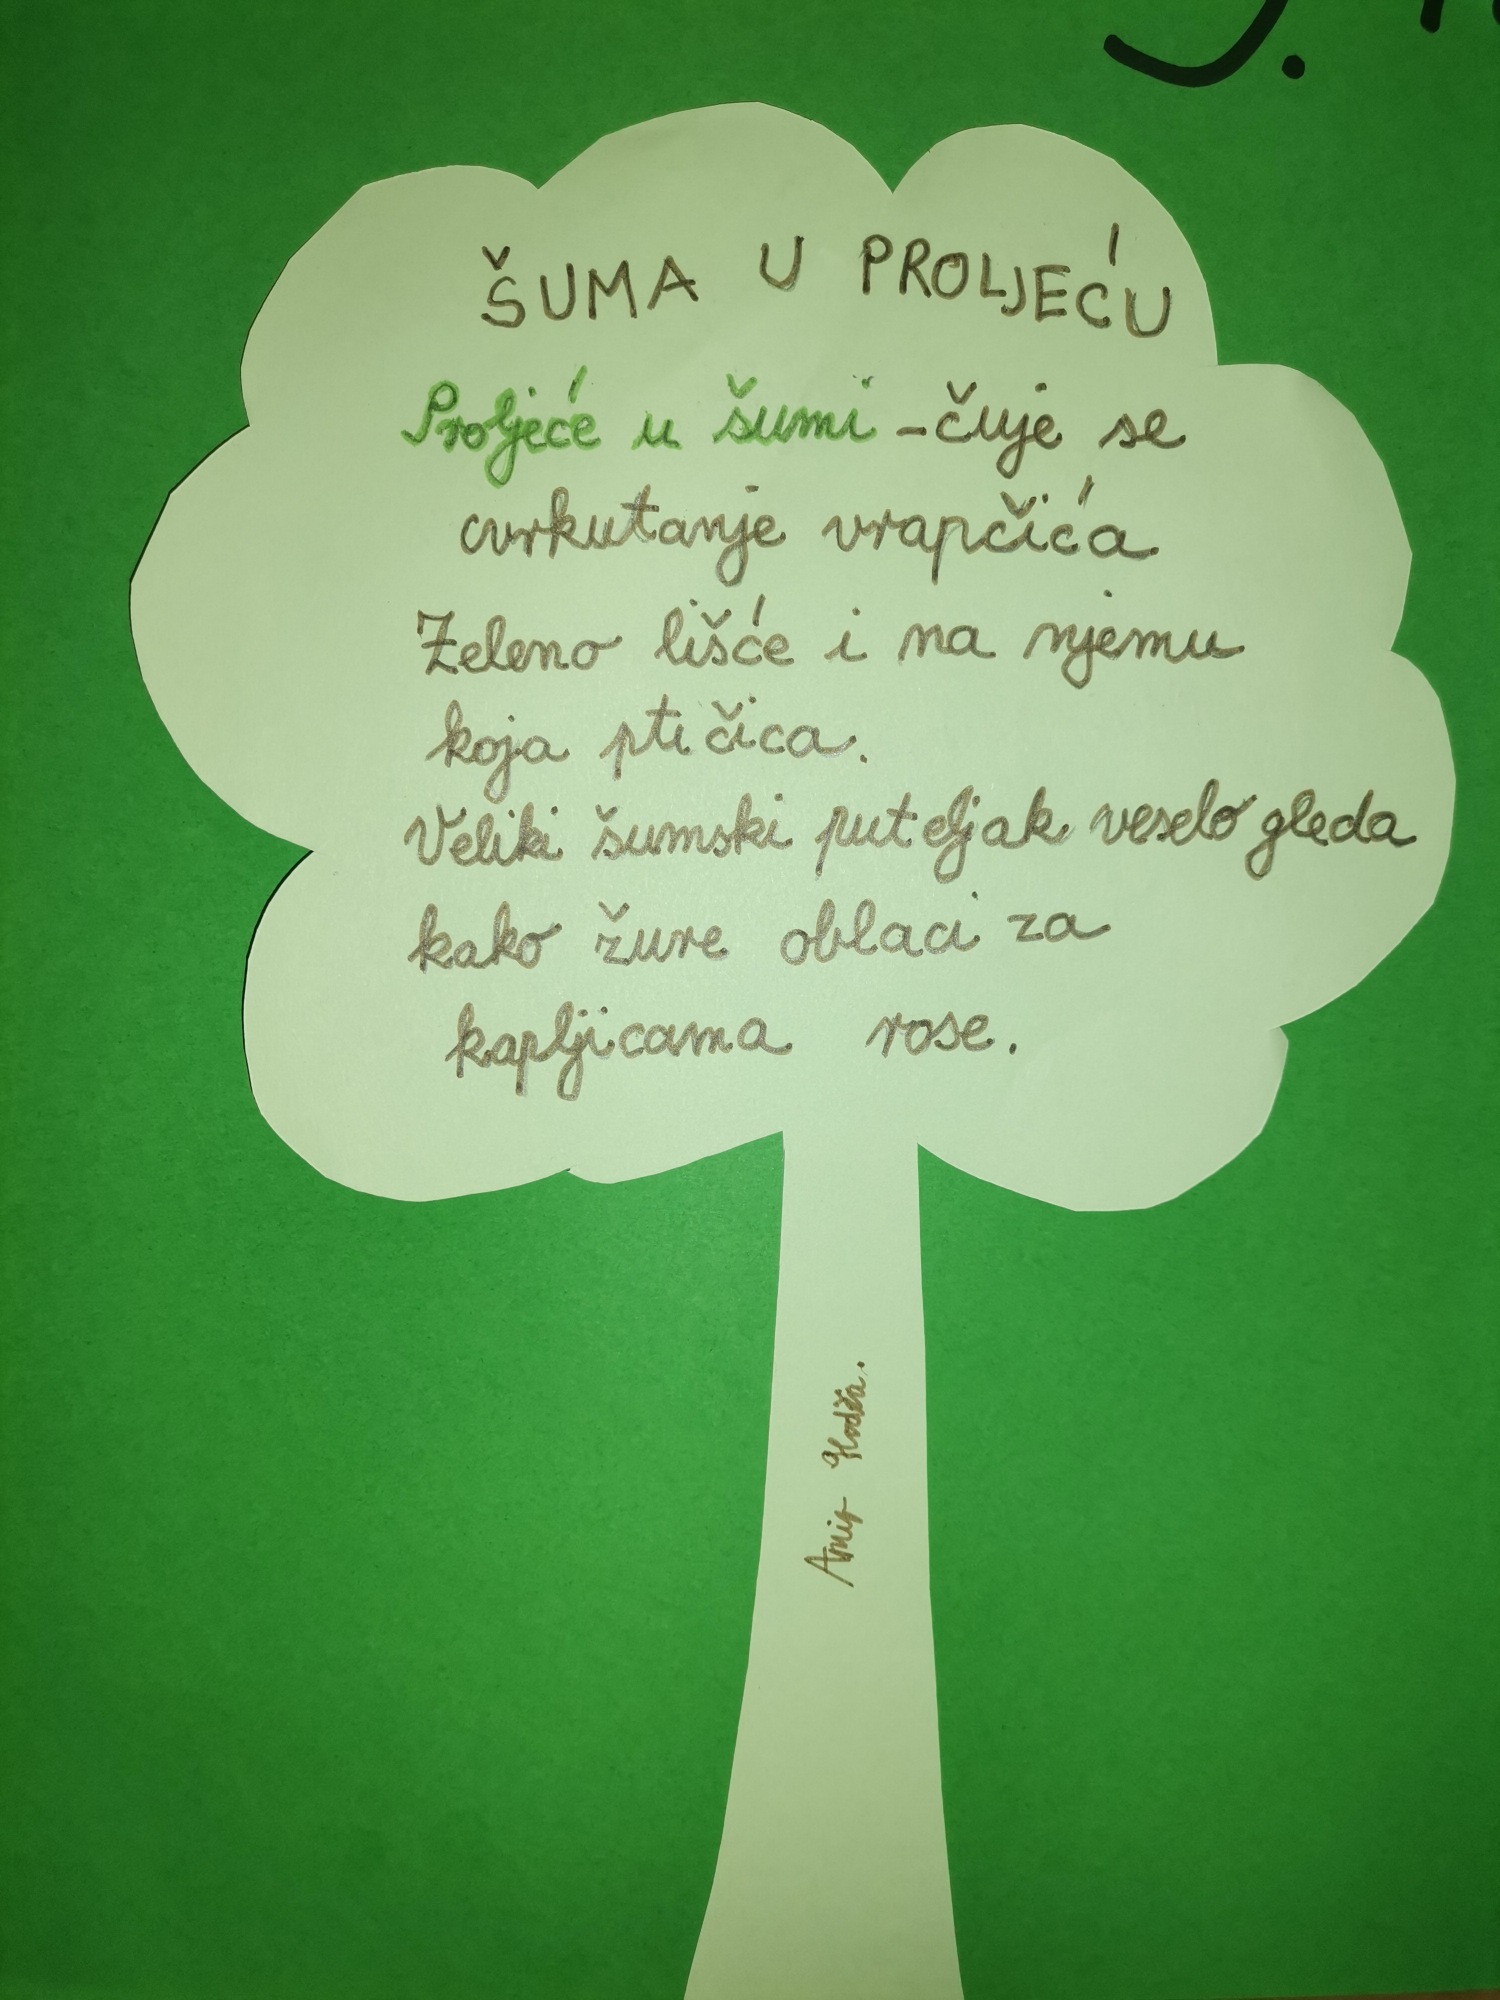 ŠUMA U PROLJEĆU
Proljeće u šumi - čuje se
cvrkutanje vrapčića
Zeleno lišće i na njemu
koja ptičica.
Veliki šumski puteljak veselo gleda
kako žure oblaci za
kapljicama rose.
Hodža.